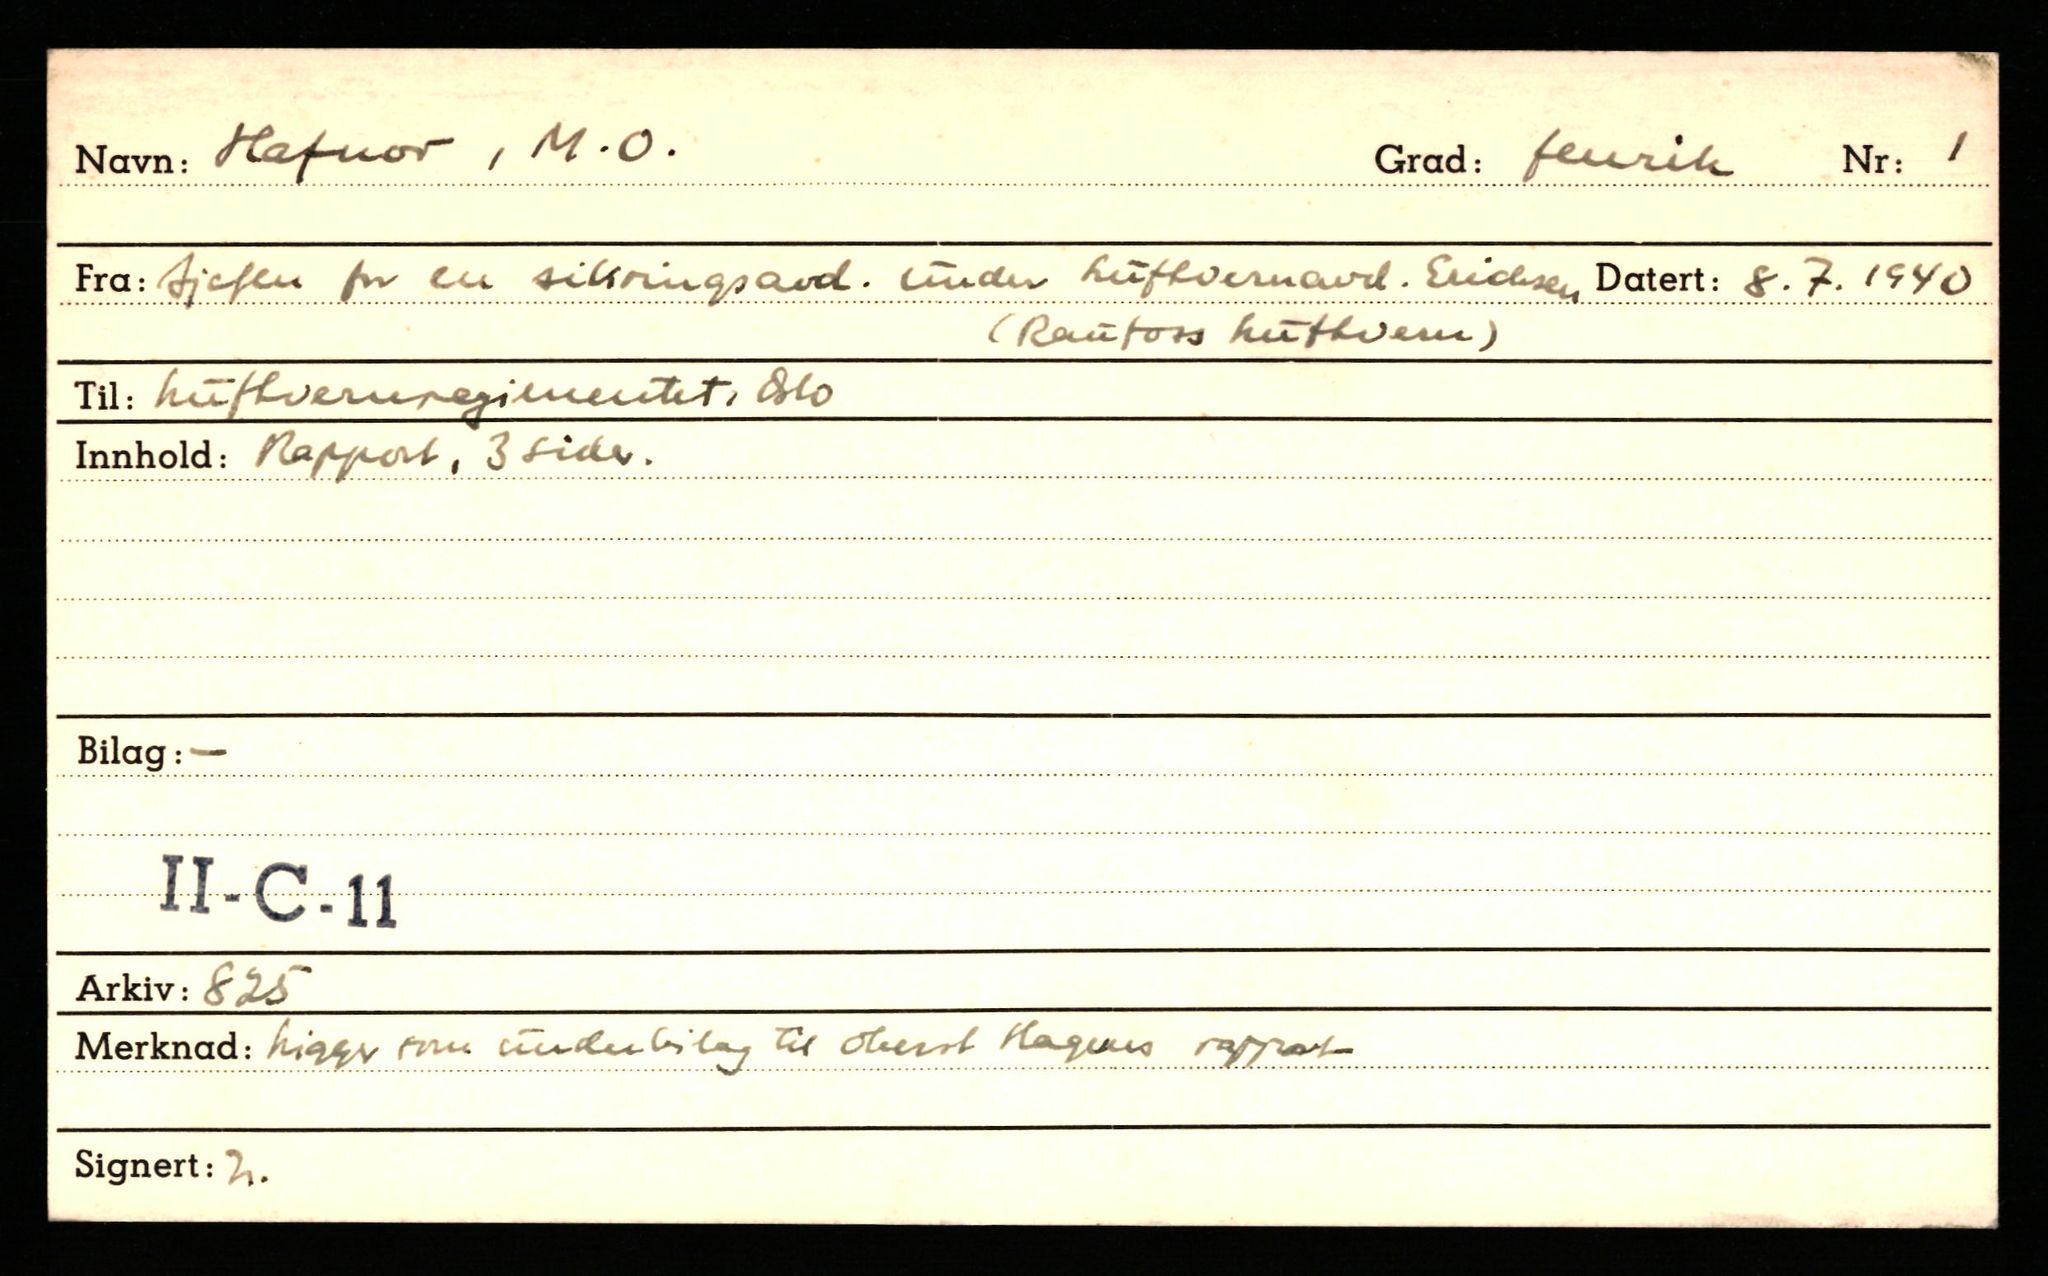 Navn: Hafnor, M.O. Grad: fenrik Nr: 1
Fra: Sjefen for en sikringsavd. under luftvernavd. Erichsen Datert: 8.7.1940
(Raufoss luftvern)
Til: Luftvernregimentet, Oslo
Innhold: Rapport, 3 sider.
Bilag: —
II-C-11
Arkiv: 825
Merknad: Ligger som underbilag til oberst Hagems rapport
Signert: